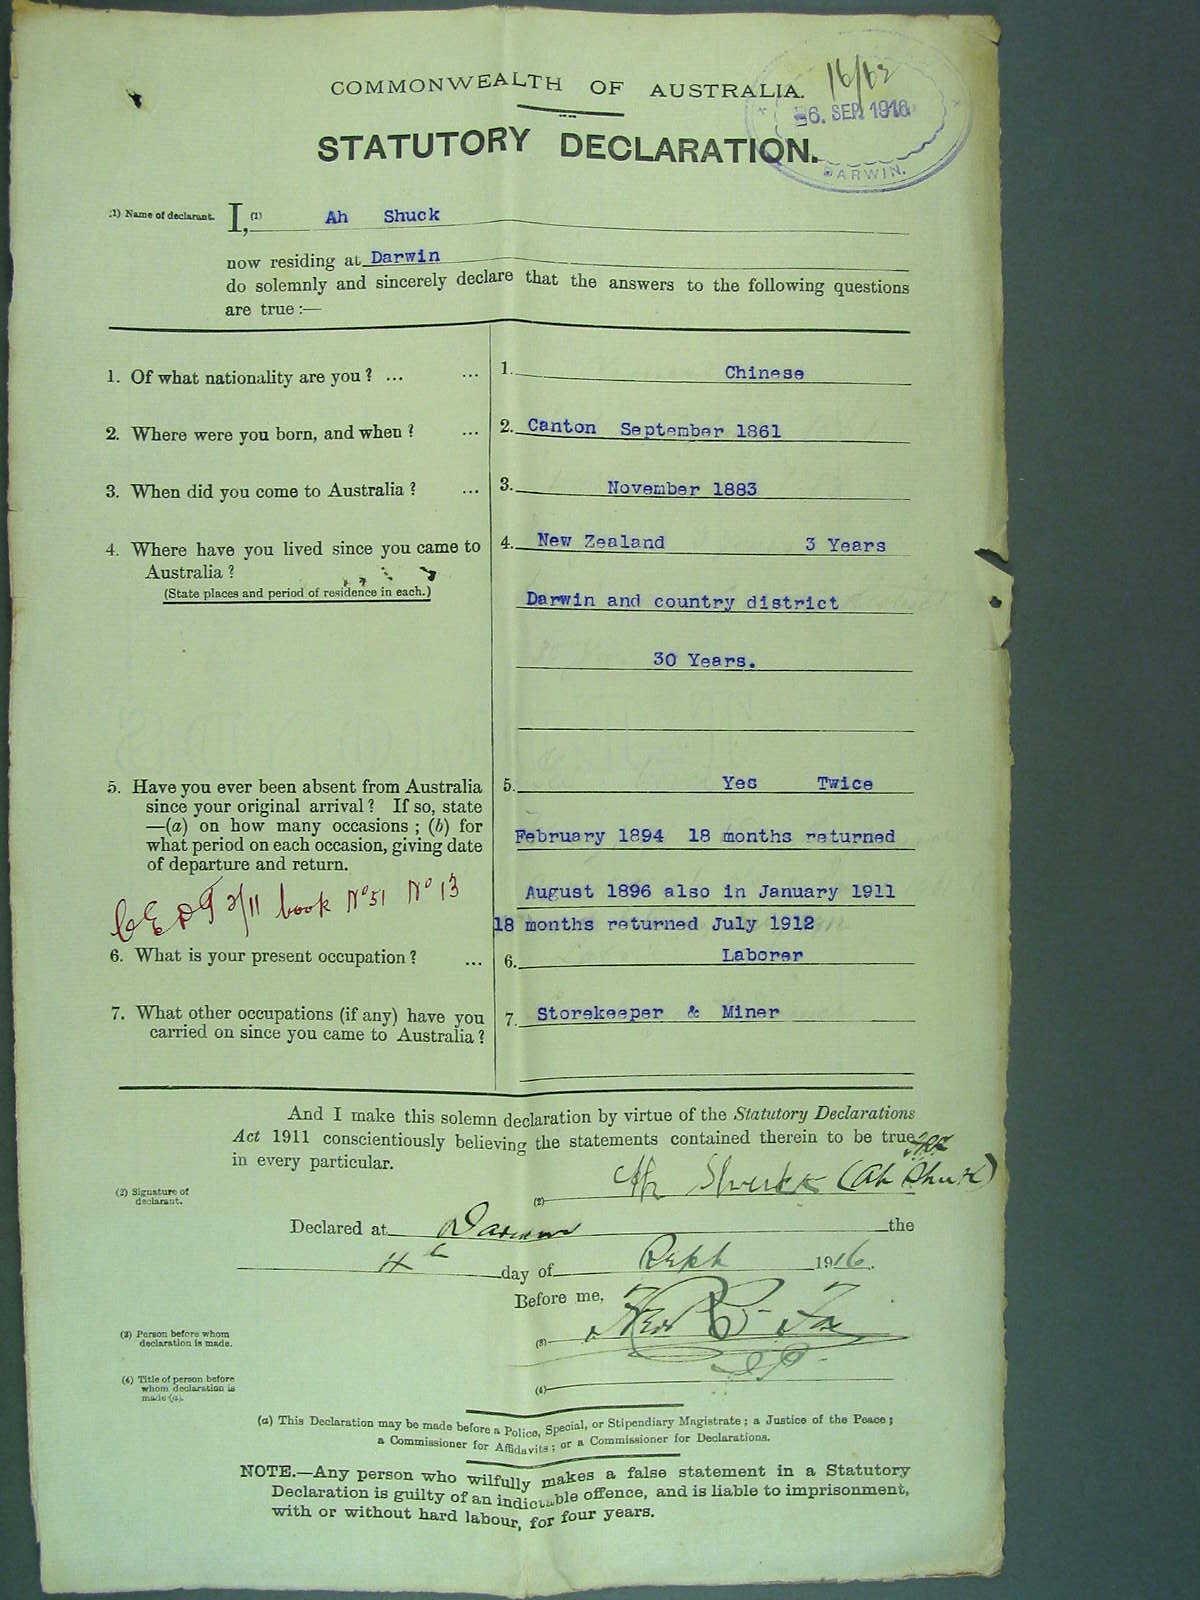 COMMONWEALTH OF AUSTRALIA.
16/
6. SEP. 1916
DARWIN.
STATUTORY DECLARATION.
(1) Name of declarant. I,(1) Ah Shuck
now residing at Darwin
do solemnly and sincerely declare that the answers to the following questions
are true :—
1. Of what nationality are you ? ... ... 1. Chinese
2. Where were you born, and when ? ... 2. Canton September 1861
3. When did you come to Australia ? ... 3. November 1883
4. Where have you lived since you came to 4. New Zealand 3 Years
Australia ?
(State places and period of residence in each.)
Darwin and country district
30 Years.
5. Have you ever been absent from Australia 5. Yes Twice
since your original arrival ? If so, state
—(a) on how many occasions ; (b) for February 1894 18 months returned
what period on each occasion, giving date
of departure and return.
August 1896 also in January 1911
CEDT 3/11 book No 51 No 13
18 months returned July 1912
6. What is your present occupation ? ... 6. Laborer
7. What other occupations (if any) have you 7. Storekeeper & Miner
carried on since you came to Australia ?
And I make this solemn declaration by virtue of the Statutory Declarations
Act 1911 conscientiously believing the statements contained therein to be true
in every particular.
(2) Signature of
declarant.
(2) Ah Shuck (Ah Shuck)
Declared at Darwin the
4th day of Sept 1916.
Before me,
(3) Person before whom
declaration is made.
(3)
(4) Title of person before
whom declaration is
made (a).
JP.
(4)
(a) This Declaration may be made before a Police, Special, or Stipendiary Magistrate ; a Justice of the Peace ;
a Commissioner for Affidavits ; or a Commissioner for Declarations.
NOTE.—Any person who wilfully makes a false statement in a Statutory
Declaration is guilty of an indictable offence, and is liable to imprisonment,
with or without hard labour, for four years.